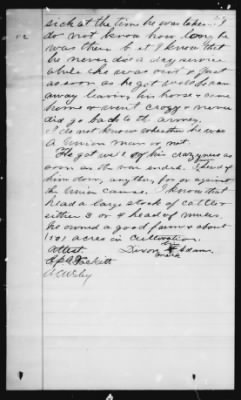 sick at the time he was taken. I
do not know how long he
was there but I know that
he never do a day service
while he was out & just
as soon as he got well he ran
away leaving his horse came
home & went crazy & never
did go back to the army.
I do not know whether he was
a Union man or not.
He got well of his crazyness as
soon as the war ended. I heard of
him doing any thing for or against
the Union cause. I know that
he had a large stock of cattle
either 3 or 4 head of mules.
he owned a good farm & about
150 acres in cultivation.
Attest
his
Dixon X Adams
mark
Hackett